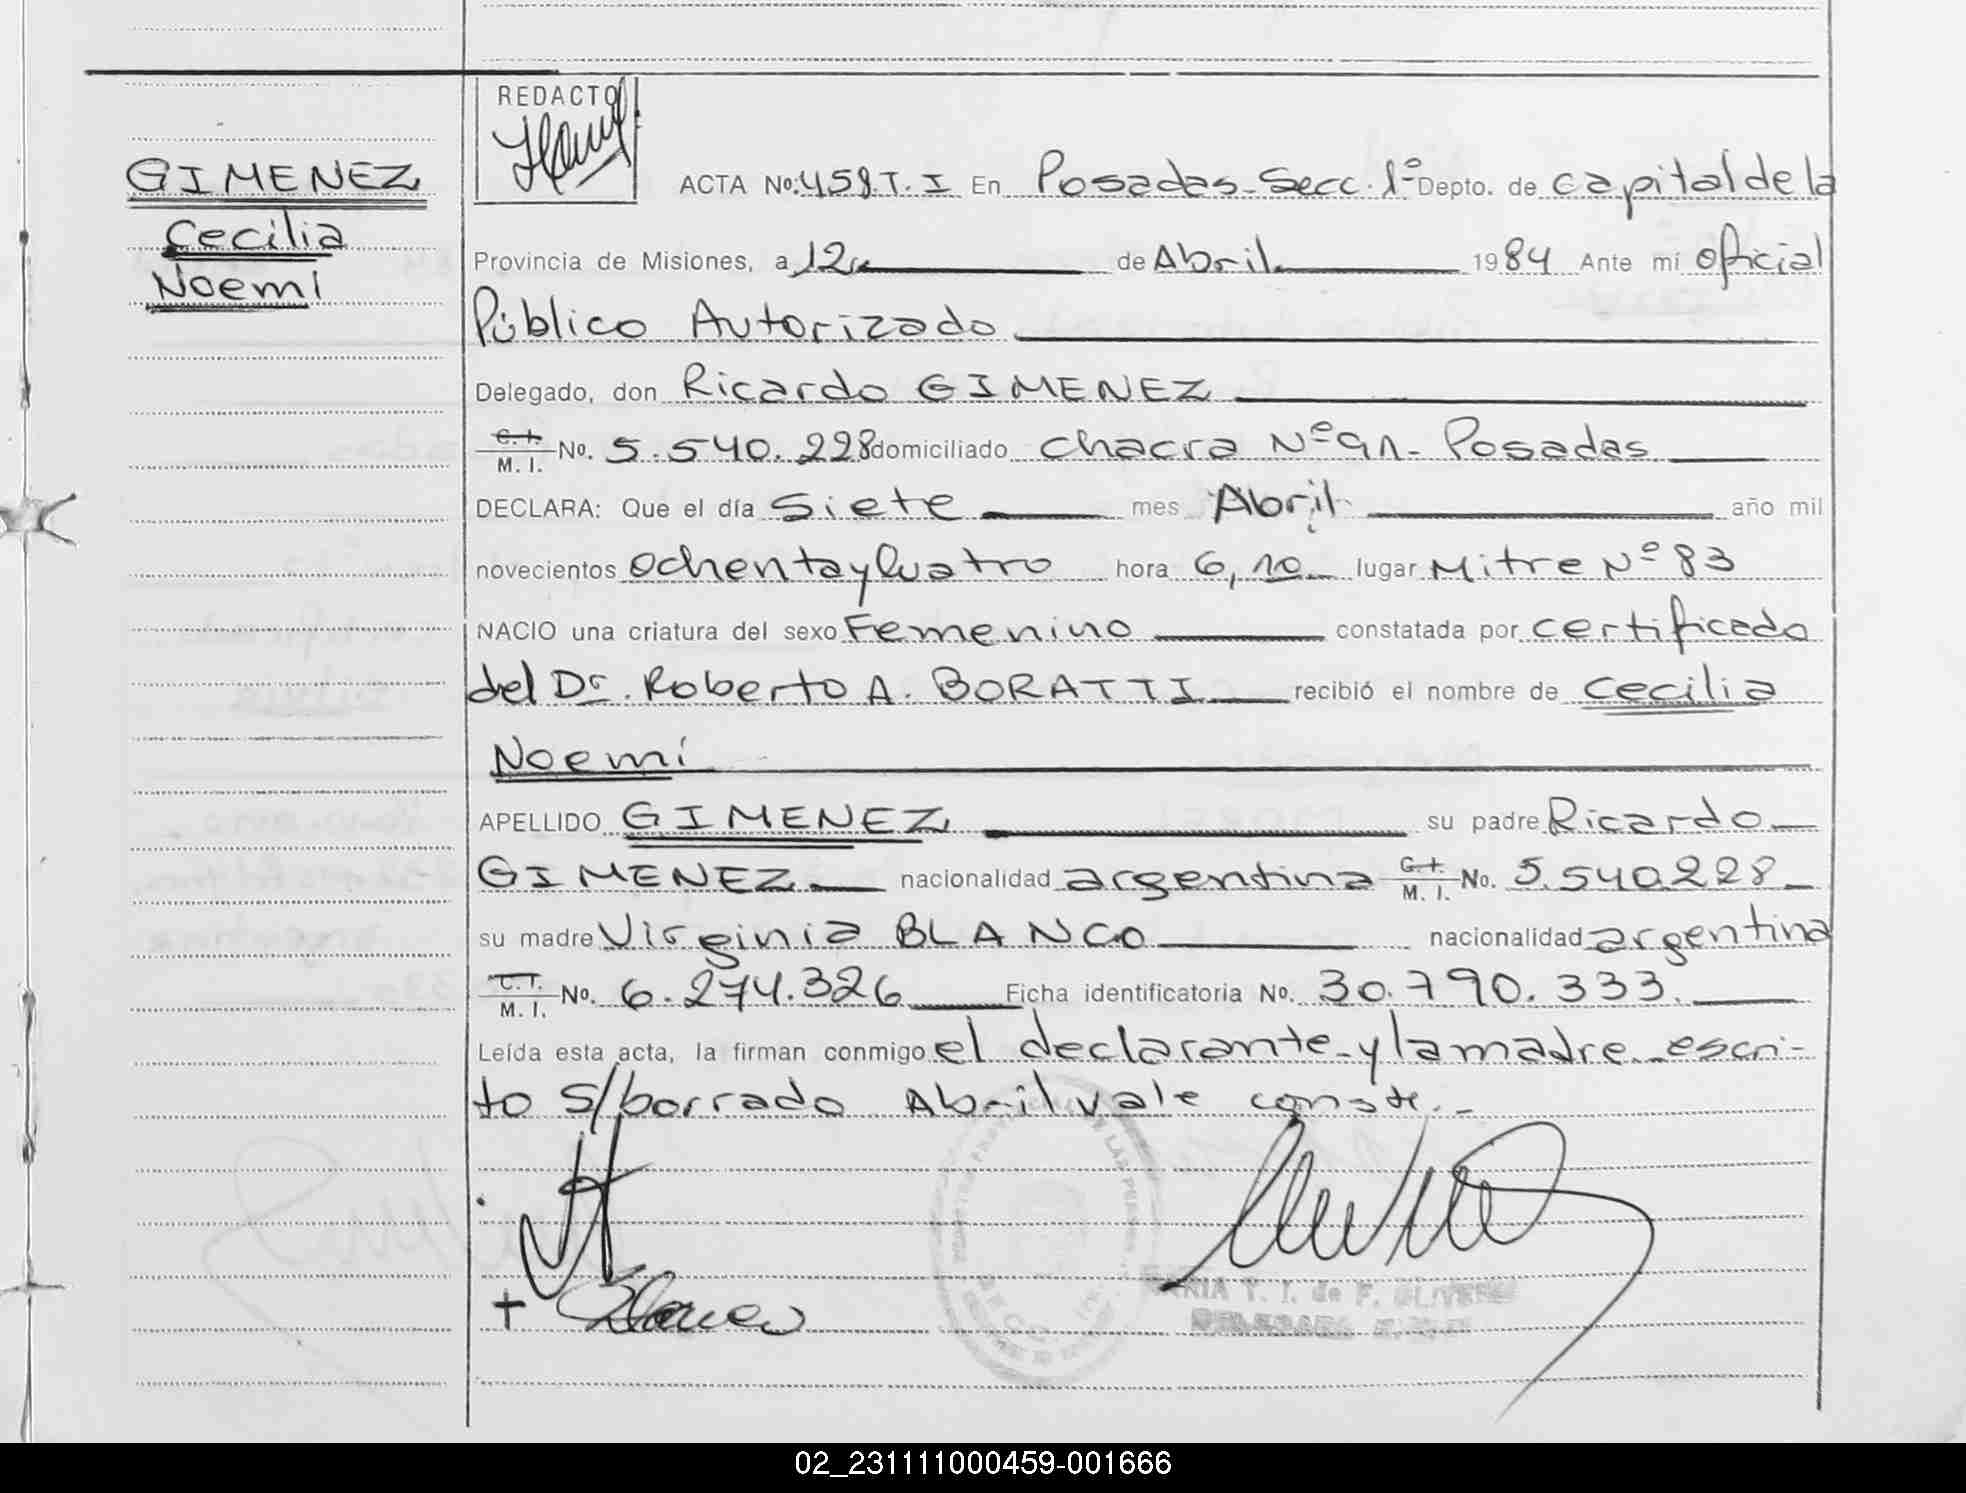 REDACTO
GIMENEZ
Cecilia
Noemí
ACTA No: 459.T.I En Posadas-Secc.1º Depto. de Capital de la
Provincia de Misiones, a 12 de Abril 1984 Ante mi oficial
Público Autorizado
Delegado, don Ricardo GIMENEZ
C.I. M.I. No. 5.540.228 domiciliado Chacra Nº 91- Posadas
DECLARA: Que el día siete mes Abril año mil
novecientos ochenta y cuatro hora 6,10 lugar Mitre Nº 83
NACIO una criatura del sexo Femenino constatada por certificado
del Dr. Roberto A. BORATTI recibió el nombre de Cecilia
Noemí
APELLIDO GIMENEZ su padre Ricardo
GIMENEZ nacionalidad argentina C.I. M.I. No. 5.540.228
su madre Virginia BLANCO nacionalidad argentina
C.I. M.I. No. 6.274.326 Ficha identificatoria No. 30.790.333.
Leída esta acta, la firman conmigo el declarante y la madre escri-
to s/borrado Abril vale conste.-
MARIA T. I. de F. OLIVERA
02_231111000459-001666